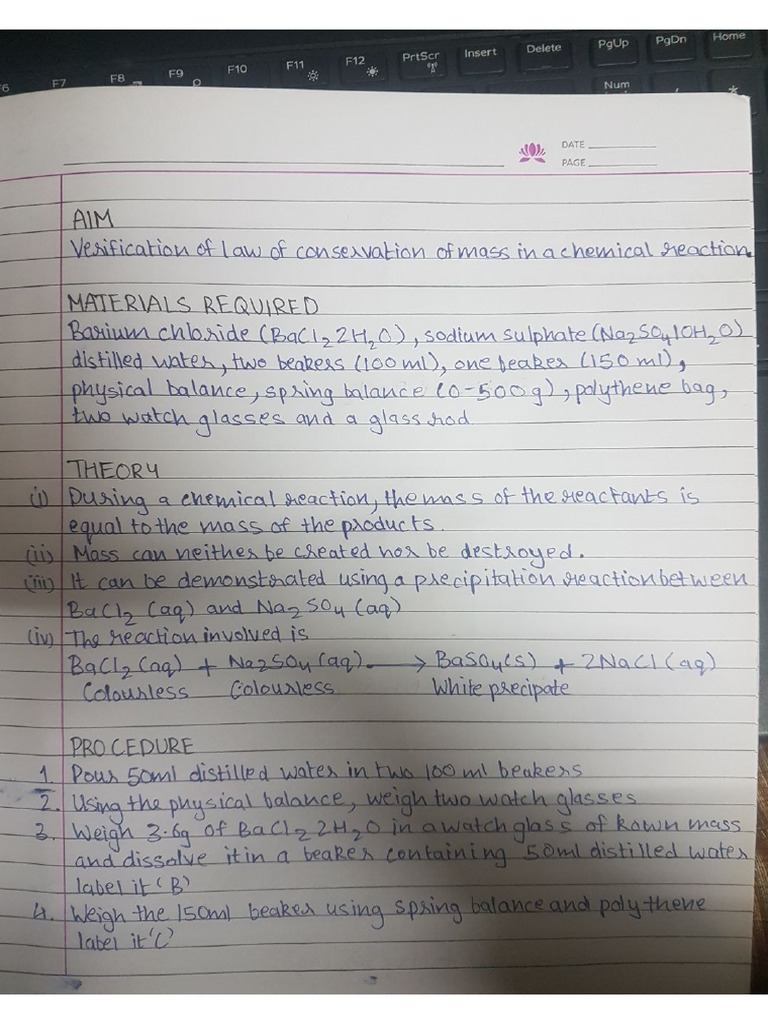 F6 F7 F8 F9 F10 F11 F12 PrtScr Insert Delete PgUp PgDn Home
Num
DATE
PAGE
AIM
Verification of law of conservation of mass in a chemical reaction.
MATERIALS REQUIRED
Barium chloride (BaCl₂2H₂O), sodium sulphate (Na₂SO₄10H₂O)
distilled water, two beakers (100ml), one beaker (150 ml),
physical balance, spring balance (0-500g), polythene bag,
two watch glasses and a glass rod
THEORY
(i) During a chemical reaction, the mass of the reactants is
equal to the mass of the products.
(ii) Mass can neither be created nor be destroyed.
(iii) It can be demonstrated using a precipitation reaction between
BaCl₂ (aq) and Na₂SO₄ (aq)
(iv) The reaction involved is
BaCl₂(aq) + Na₂SO₄(aq) → BaSO₄(s) + 2NaCl(aq)
Colourless Colourless White precipate
PROCEDURE
1. Pour 50ml distilled water in two 100 ml beakers
2. Using the physical balance, weigh two watch glasses
3. Weigh 3.6g of BaCl₂2H₂O in a watch glass of kown mass
and dissolve it in a beaker containing 50ml distilled water
label it 'B)
4. Weigh the 150ml beaker using spring balance and polythene
label it 'C'